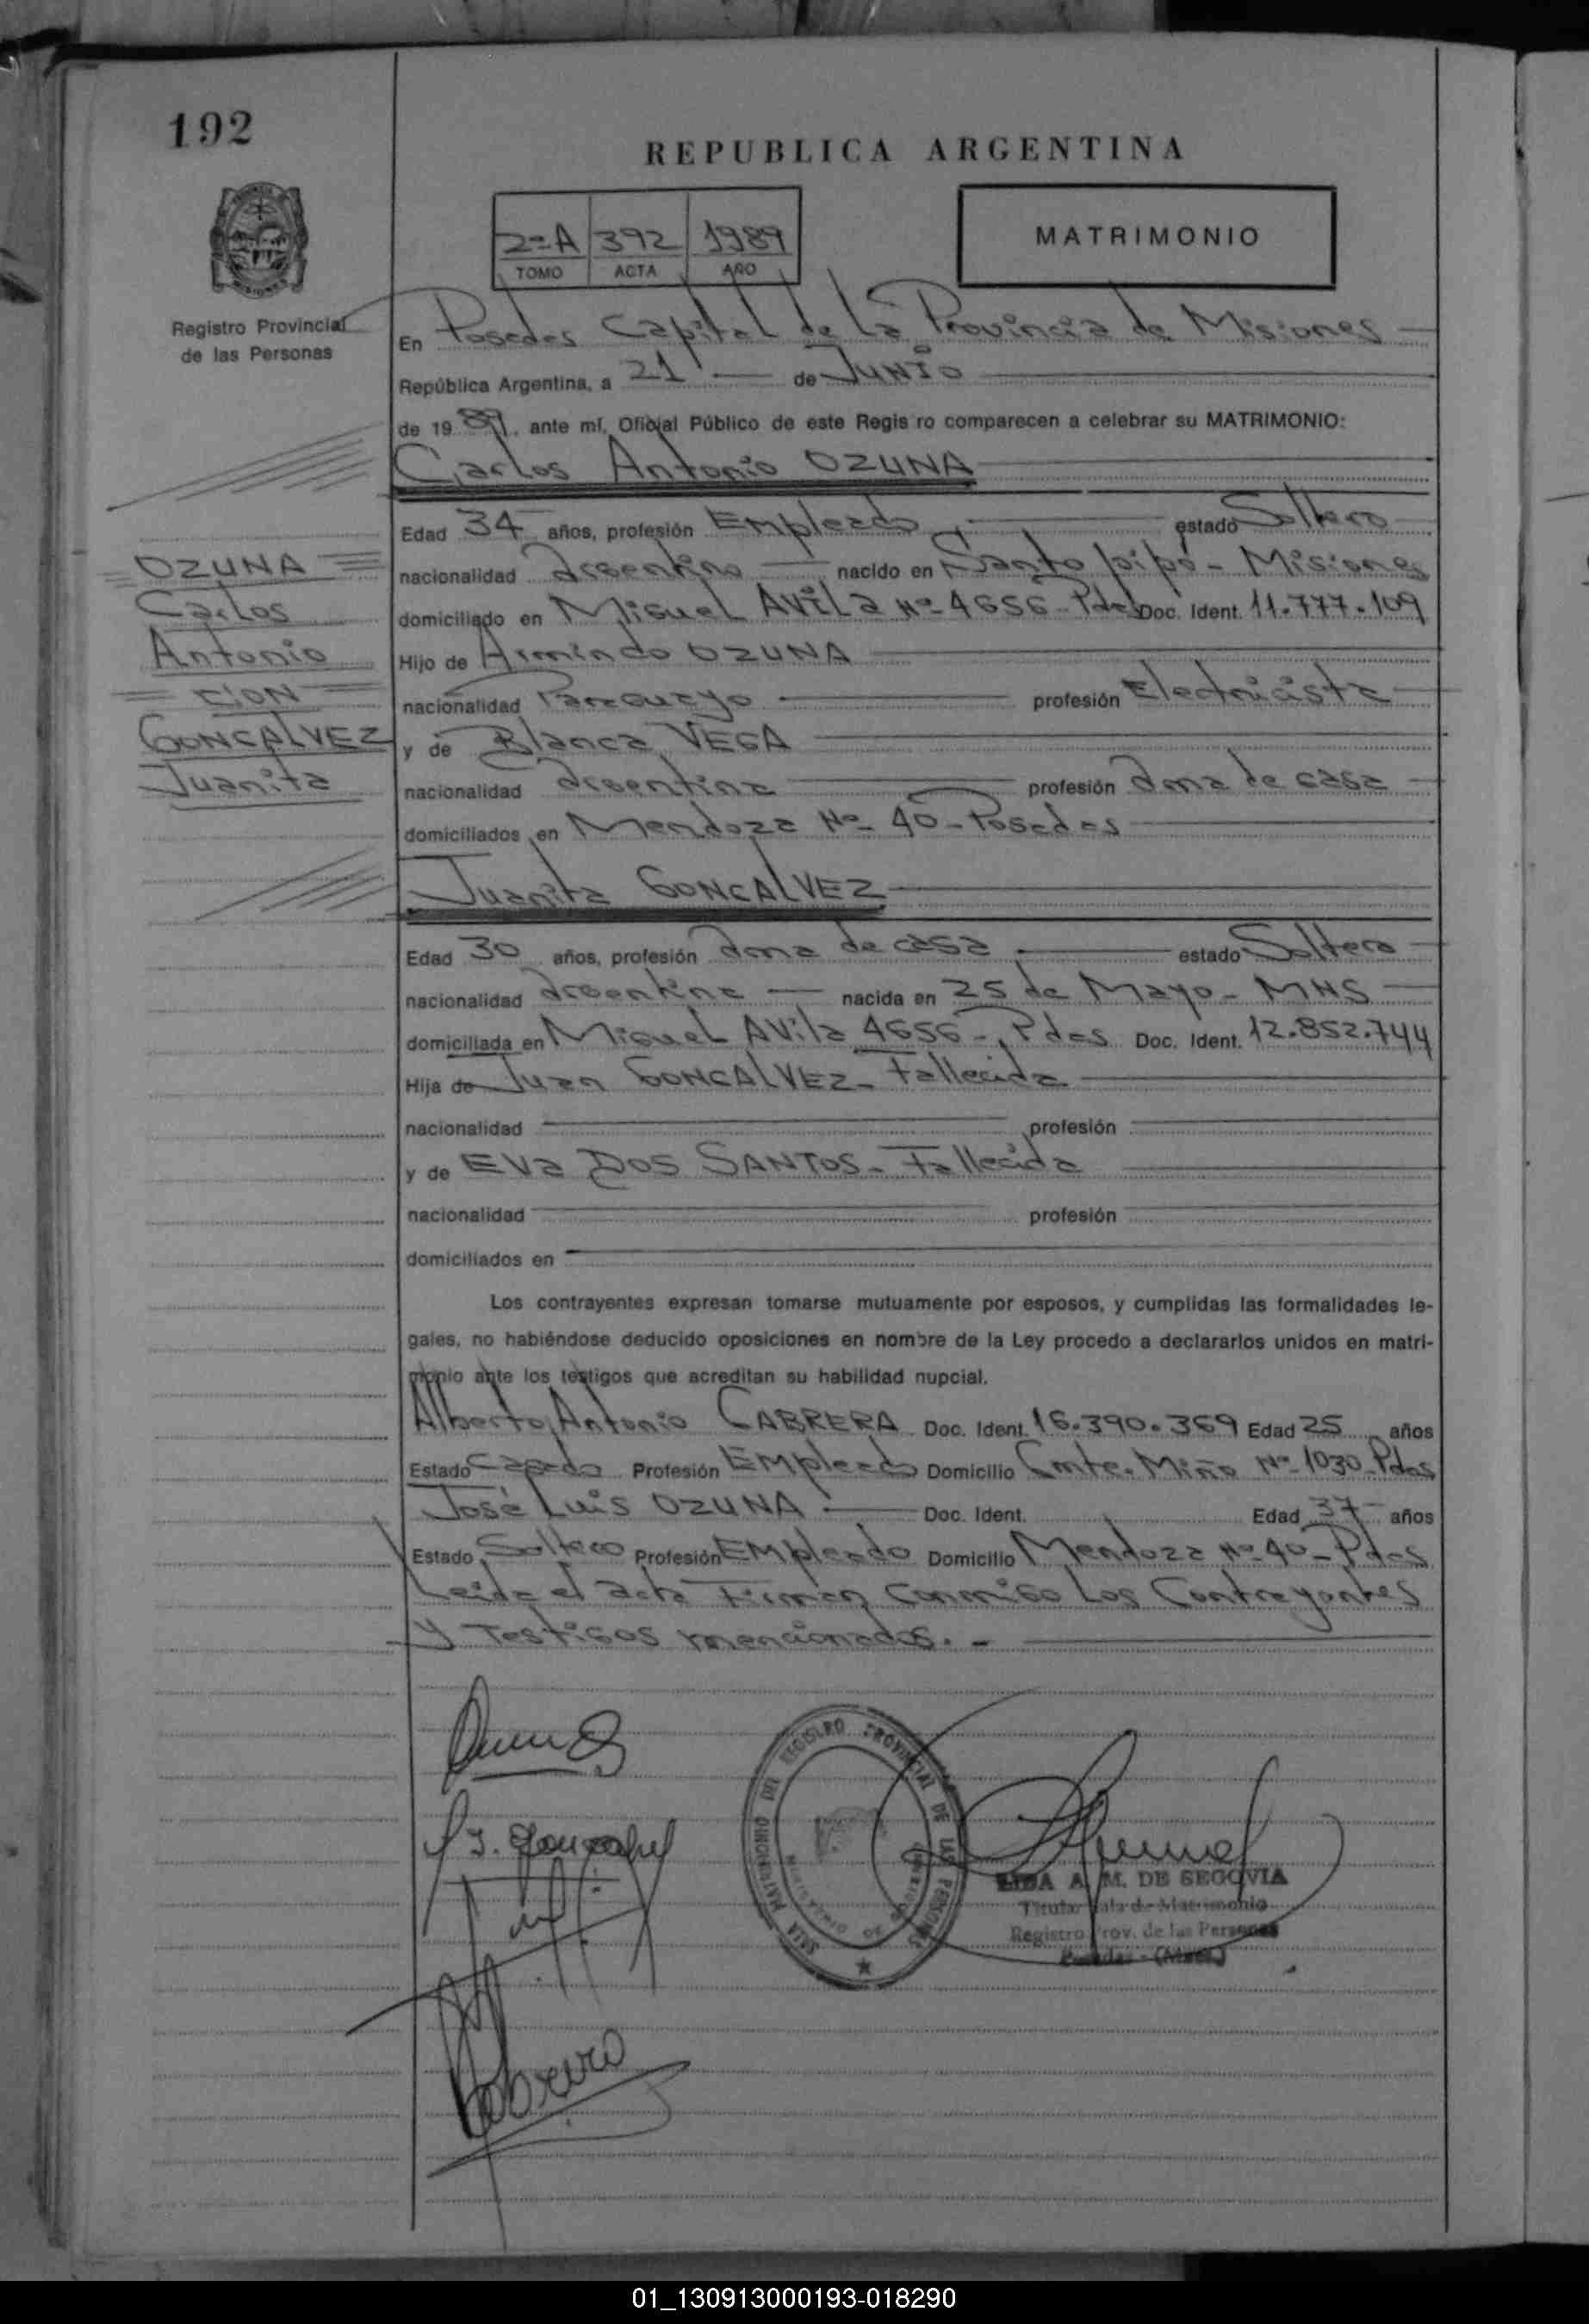 192
REPUBLICA ARGENTINA
2ºA 392 1989
TOMO ACTA AÑO
MATRIMONIO
Registro Provincial
de las Personas
En Posadas Capital de la Provincia de Misiones
República Argentina, a 21 de JUNIO
de 1989, ante mí, Oficial Público de este Regis ro comparecen a celebrar su MATRIMONIO:
Carlos Antonio OZUNA
Edad 34 años, profesión Empleado estado Soltero
nacionalidad Argentino nacido en Santo pipó - Misiones
domiciliado en Miguel AVILA Nº 4656 - Pdas Doc. Ident. 11.777.109
Hijo de Armindo OZUNA
nacionalidad Paraguayo profesión Electricista
y de Blanca VEGA
nacionalidad Argentina profesión Ama de casa
domiciliados en Mendoza Nº 40 - Posadas
OZUNA
Carlos
Antonio
CION
GONCALVEZ
Juanita
Juanita GONCALVEZ
Edad 30 años, profesión Ama de casa estado Soltera
nacionalidad Argentina nacida en 25 de Mayo - MNS
domiciliada en Miguel AVila 4656 - Pdas Doc. Ident. 12.852.744
Hija de Juan GONCALVEZ - Fallecida
nacionalidad profesión
y de EVa DOS SANTOS - Fallecida
nacionalidad profesión
domiciliados en
Los contrayentes expresan tomarse mutuamente por esposos, y cumplidas las formalidades le-
gales, no habiéndose deducido oposiciones en nombre de la Ley procedo a declararlos unidos en matri-
monio ante los testigos que acreditan su habilidad nupcial.
Alberto Antonio CABRERA Doc. Ident. 16.390.369 Edad 25 años
Estado Casado Profesión Empleado Domicilio Cmte. Miño Nº 1030 - Pdas
José Luis OZUNA Doc. Ident. Edad 37 años
Estado Soltero Profesión EMpleado Domicilio Mendoza Nº 40 - Pdas
Leida el acta Firman Conmigo Los Contrayentes
y Testigos mencionados. -
SALA MATRIMONIO DEL REGISTRO PROVINCIAL DE LAS PERSONAS
MINISTERIO DE GOBIERNO
A. M. DE SEGOVIA
Titular Sala de Matrimonio
Registro Prov. de las Personas
Posadas - (Mnes.)
01_130913000193-018290